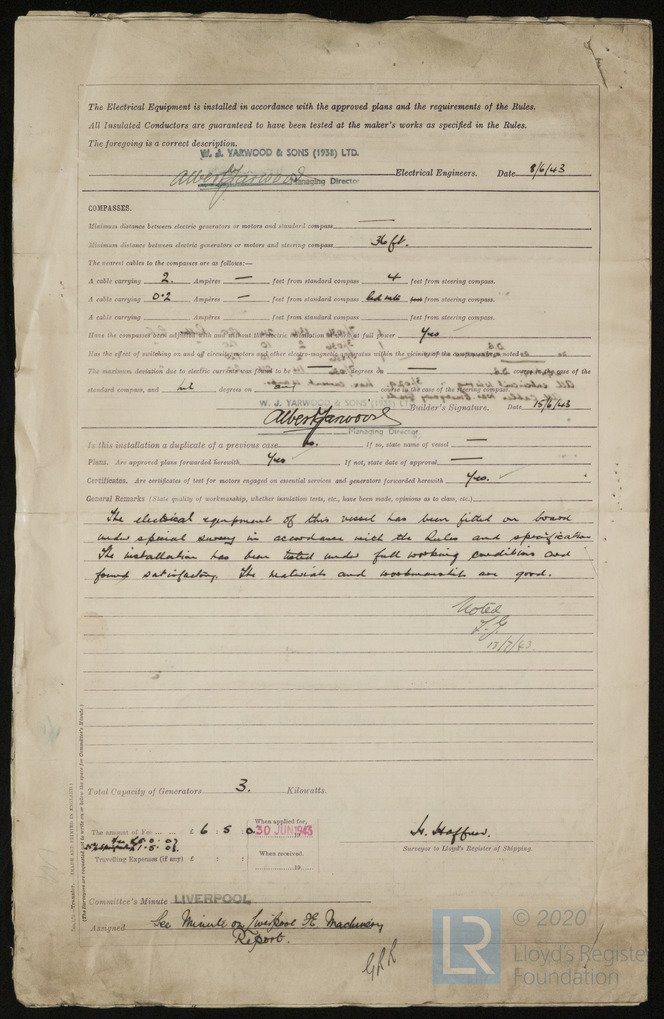 The Electrical Equipment is installed in accordance with the approved plans and the requirements of the Rules.
All Insulated Conductors are guaranteed to have been tested at the maker's works as specified in the Rules.
The foregoing is a correct description.
W. J. YARWOOD & SONS (1938) LTD.
Albert Yarwood Managing Director Electrical Engineers. Date 8/6/43
COMPASSES.
Minimum distance between electric generators or motors and standard compass —
Minimum distance between electric generators or motors and steering compass 36 ft.
The nearest cables to the compasses are as follows:—
A cable carrying 2. Ampères — feet from standard compass 4 feet from steering compass.
A cable carrying 0.2 Ampères — feet from standard compass feet from steering compass.
A cable carrying Ampères feet from standard compass feet from steering compass.
Have the compasses been adjusted with and without the electric installation at work at full power Yes
Has the effect of switching on and off circuits, motors and other electro-magnetic apparatus within the vicinity of the compasses been noted
The maximum deviation due to electric currents was found to be — degrees on — course in the case of the
standard compass, and nil degrees on any course in the case of the steering compass.
W. J. YARWOOD & SONS (1938) LTD
Albert Yarwood Builder's Signature. Date 15/6/43
Managing Director.
Is this installation a duplicate of a previous case no. If so, state name of vessel —
Plans. Are approved plans forwarded herewith Yes If not, state date of approval —
Certificates. Are certificates of test for motors engaged on essential services and generators forwarded herewith Yes.
General Remarks (State quality of workmanship, whether insulation tests, etc., have been made, opinions as to class, etc.)
The electrical equipment of this vessel has been fitted on board
under special survey in accordance with the Rules and specification
The installation has been tested under full working conditions and
found satisfactory. The materials and workmanship are good.
Noted
13/7/43.
Total Capacity of Generators 3. Kilowatts.
The amount of Fee ... ... £ 6 : 5 : 0 When applied for, 30 JUN 1943
Travelling Expenses (if any) £ : : When received, 19
H. Haffner.
Surveyor to Lloyd's Register of Shipping.
Committee's Minute LIVERPOOL
Assigned See Minute on Liverpool F.E. Machinery
Report.
GRR
(The Surveyors are requested not to write on or below the space for Committee's Minute.)
LR
© 2020
Lloyd's Register
Foundation